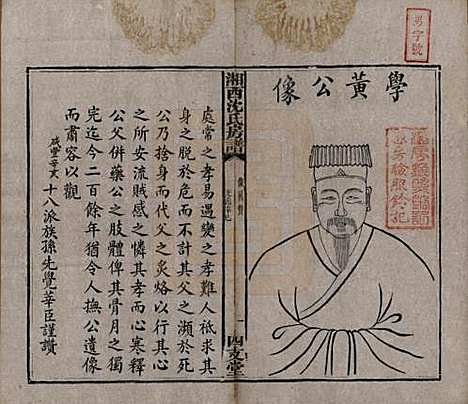 學黃公像
湘西沈氏房譜
四支堂
處常之孝易遇變之孝難人祗求其
身之脫於危而不計其父之瀕於死
公乃捨身而代父之炙烙以行其心
之所安流賊感之憐其孝而心寒釋
公父併藥公之肢體俾其骨月之獨
完迄今二百餘年猶令人撫公遺像
而肅容以觀
咸豐辛亥十八派族孫先覺華臣謹讚